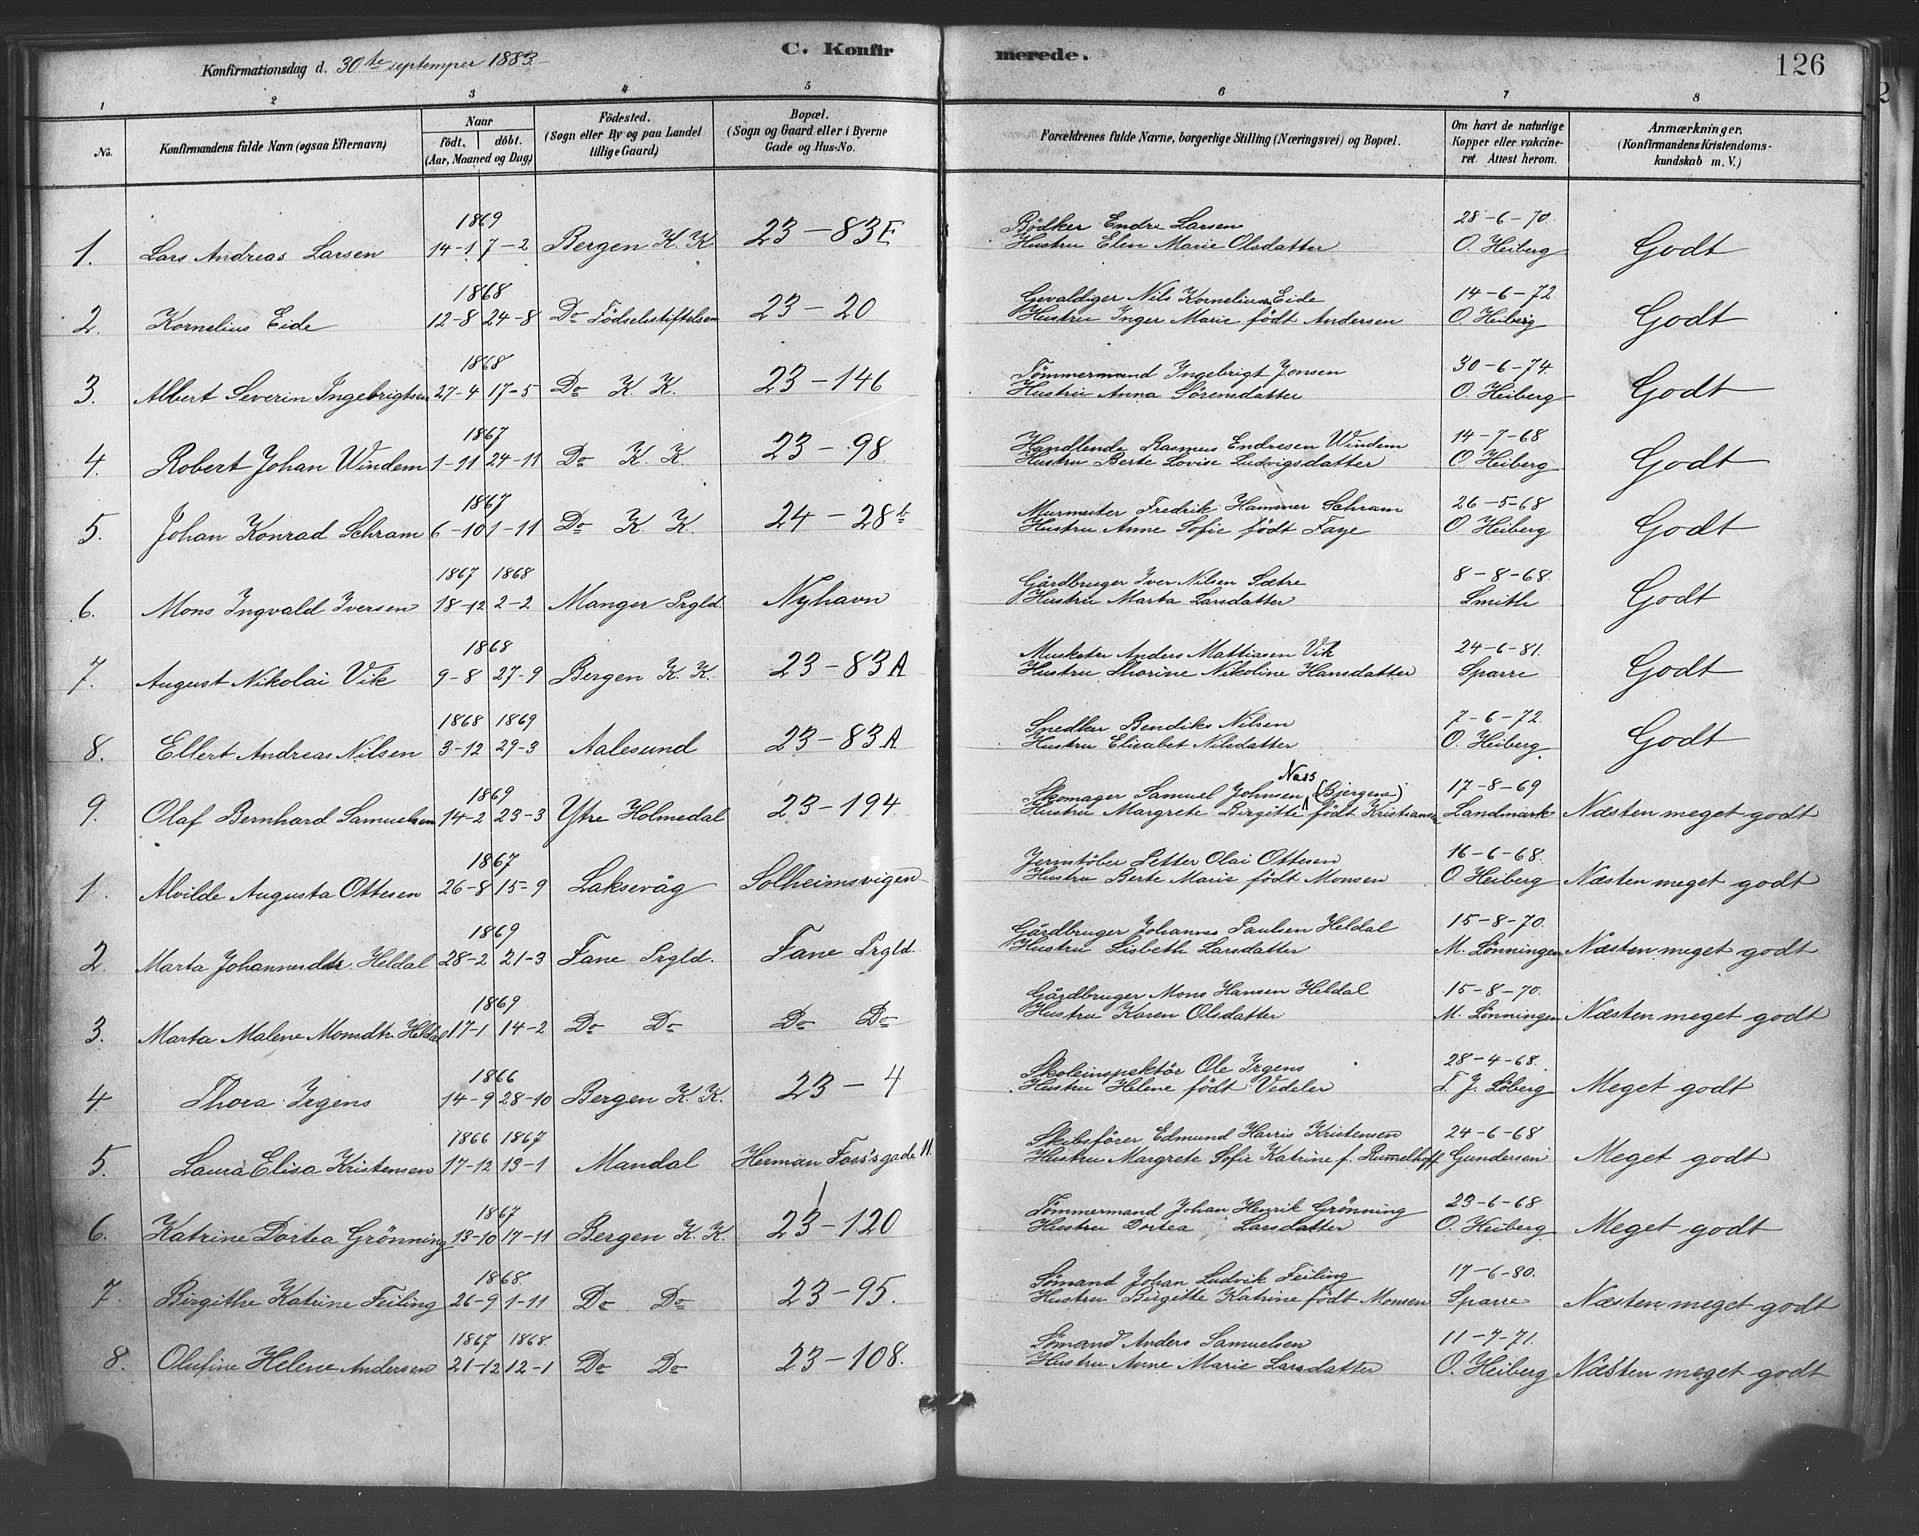 C. Konfirmerede.
126
Konfirmationsdag d. 30te septemper 1883
1 2 3 4 5 6 7 8
No. | Konfirmandens fulde Navn (ogsaa Efternavn) | Naar født. døbt. (Aar, Maaned og Dag) | Fødested. (Sogn eller By og paa Landet tillige Gaard) | Bopæl. (Sogn og Gaard eller i Byerne Gade og Hus-No. | Forældrenes fulde Navne, borgerlige Stilling (Næringsvei) og Bopæl. | Om havt de naturlige Kopper eller vakcineret. Attest herom. | Anmærkninger. (Konfirmandens Kristendomskundskab m. V.)
1869 Bödker Endre Larsen 28-6-70.
1. Lars Andreas Larsen 14-1 7-2 Bergen K. K. 23-83E Hustru Elen Marie Olsdatter O. Heiberg Godt
1868 Givaldiger Nils Kornelius Eide 14-6-72
2. Kornelius Eide 12-8 24-8 Do Födselsstiftelsen 23-20 Hustru Inger Marie födt Andersen O. Heiberg Godt
1868 Tömmermand Ingebrigt Jonsen 30-6-74.
3. Albert Severin Ingebrigtsen 27-4 17-5 Do K. K. 23-146 Hustru Anna Sörensdatter O. Heiberg Godt
1867 Handlende Rasmus Endresen Windem 14-7-68
4. Robert Johan Windem 1-11 24-11 Do K. K. 23-98 Hustru Berte Lovise Ludvigsdatter O. Heiberg Godt
1867 Murmester Fredrik Hammer Schram 26-5-68
5. Johan Konrad Schram 6-10 1-11 Do K. K. 24-28b Hustru Anne Sofie födt Faye O. Heiberg Godt
1867 1868 Gårdbruger Iver Nilsen Sætre 8-8-68.
6. Mons Ingvald Iversen 18-12 2-2 Manger Prgld Nyhavn Hustru Marta Larsdatter Smith Godt
1868 Musketer Anders Mattiasen Vik 24-6-81.
7. August Nikolai Vik 9-8 27-9 Bergen K. K. 23-83A Hustru Thorine Nikoline Hansdatter Sparre Godt
1868 1869 Snedker Bendiks Nilsen 7-6-72.
8. Ellert Andreas Nilsen 3-12 29-3 Aalesund 23-83A Hustru Elisabet Nilsdatter O. Heiberg Godt
1869 Skomager Samuel Johnsen Nass (Bjergene) 17-8-69
9. Olaf Bernhard Samuelsen 14-2 23-3 Ytre Holmedal 23-194 Hustru Margrete Birgitte födt Kristiansen Landmark Næsten meget godt
1867 Jernstöber Petter Olai Ottesen 16-6-68.
1. Alvilde Augusta Ottesen 26-8 15-9 Laksevåg Solheimsvigen Hustru Berte Marie födt Monsen O. Heiberg Næsten meget godt
1869 Gårdbruger Johannes Paulsen Heldal 15-8-70.
2. Marta Johannesdtr Heldal 28-2 21-3 Fane Prgld. Fane Prgld. Hustru Lisbeth Larsdatter M. Lönningen Næsten meget godt
1869 Gårdbruger Mons Hansen Heldal 15-8-70.
3. Marta Malene Monsdtr Heldal 17-1 14-2 Do Do Do Do Hustru Karen Olsdatter M. Lönningen Næsten meget godt
1866 Skoleinspektör Ole Irgens 28-4-68.
4. Thora Irgens 14-9 28-10 Bergen K. K. 23-4 Hustru Helene födt Vedeler F. J. Löberg Meget godt
1866 1867 Skibsförer Edmund Harris Kristensen 24-6-68
5. Laura Elisa Kristensen 17-12 13-1 Mandal Herman Foss's gade 11 Hustru Margrete Sofie Katrine f. Rumelhoff Gundersen Meget godt
1867 Tömmermand Johan Henrik Grönning 23-6-68
6. Katrine Dortea Grönning 13-10 17-11 Bergen K. K. 23-120 Hustru Dortea Larsdatter O. Heiberg Meget godt
1868. Sömand Johan Ludvik Feiling 17-6-80.
7. Birgithe Katrine Feiling 26-9 1-11 Do Do 23-95. Hustru Birgitte Katrine födt Monsen Sparre Næsten meget godt
1867 1868. Sömand Anders Samuelsen 11-7-71.
8. Olufine Helene Andersen 21-12 12-1 Do Do 23-108. Hustru Anne Marie Larsdatter O. Heiberg Næsten meget godt